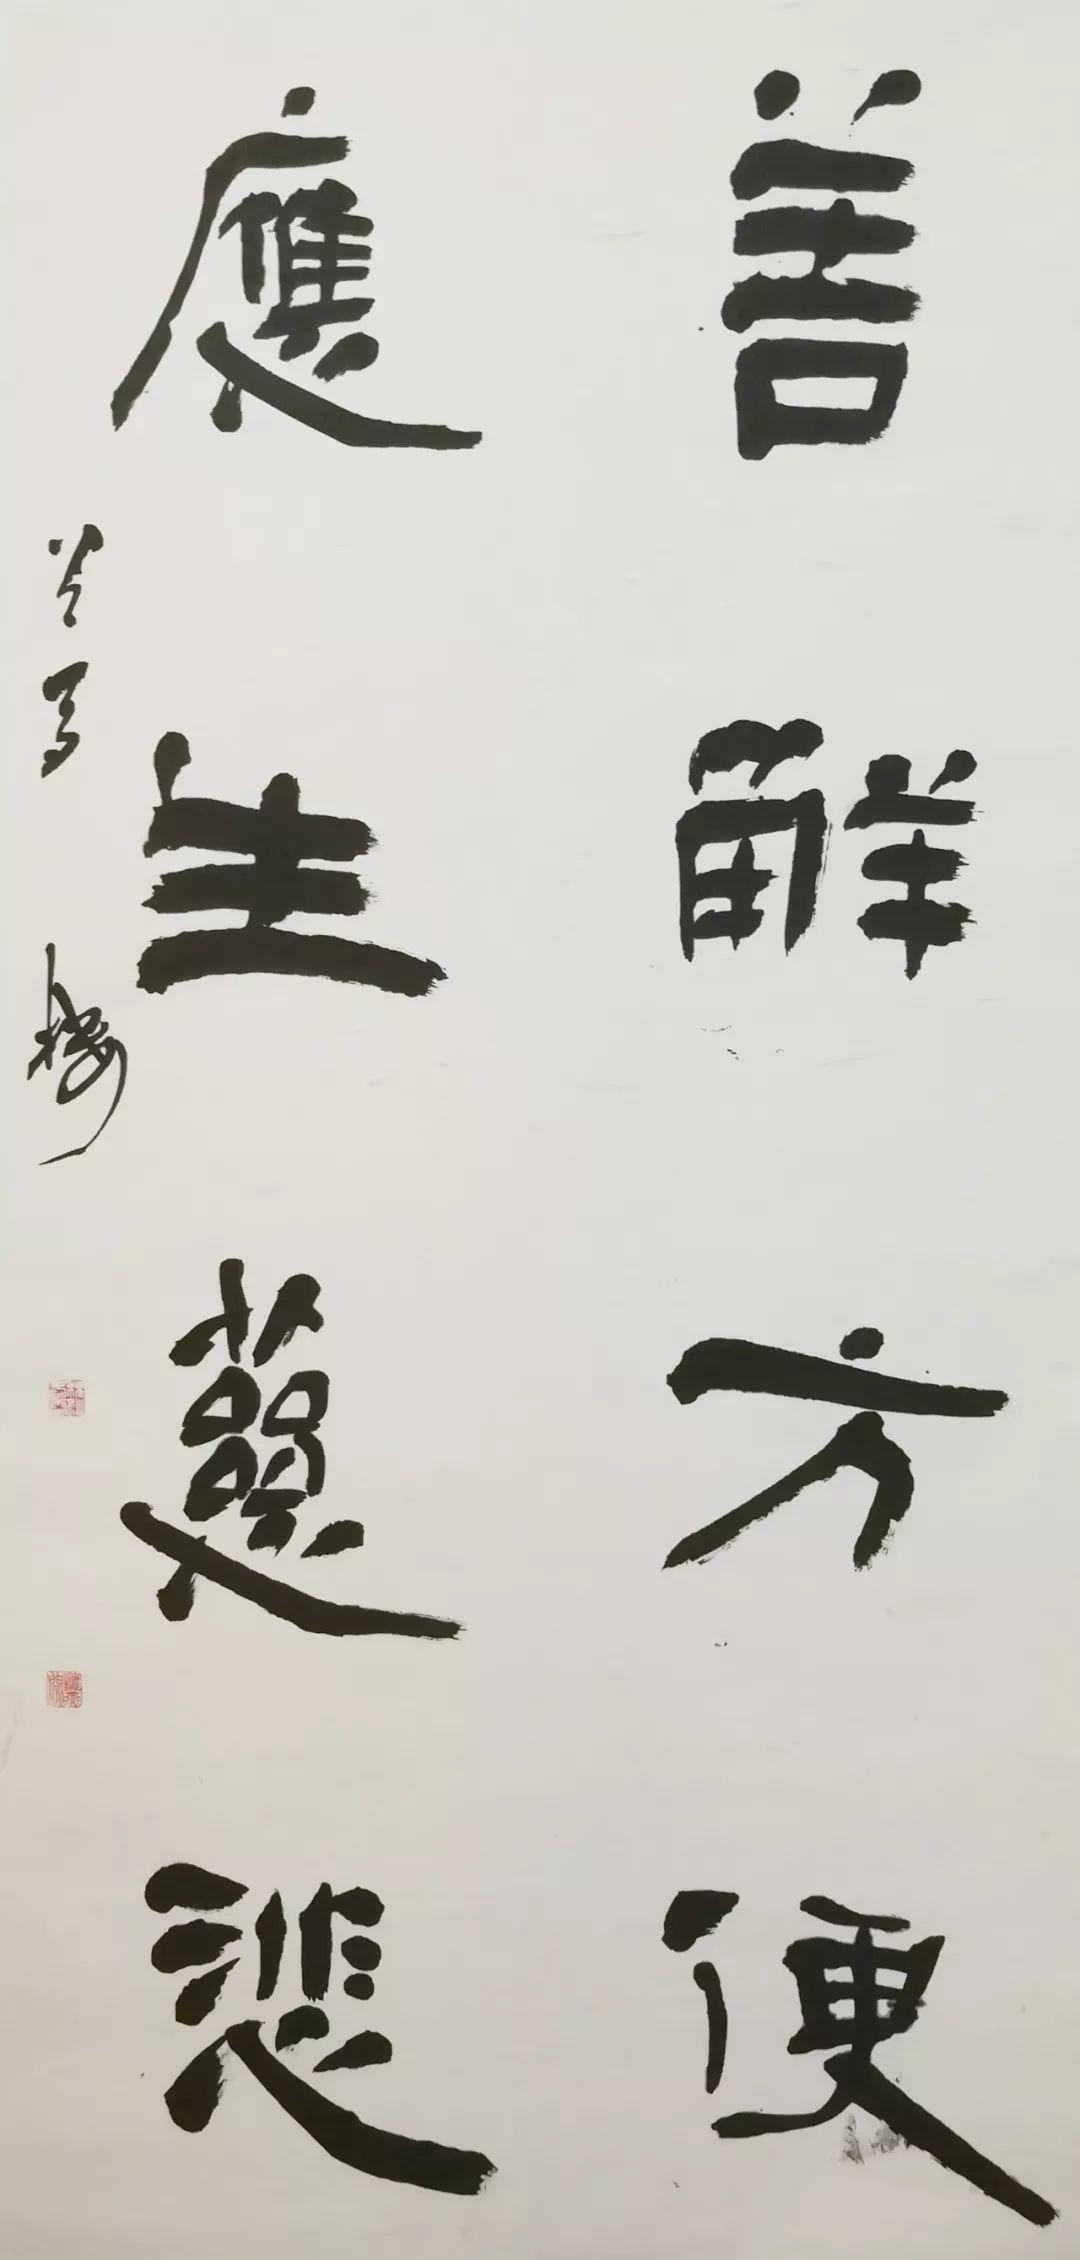 善解方便
應生慈悲